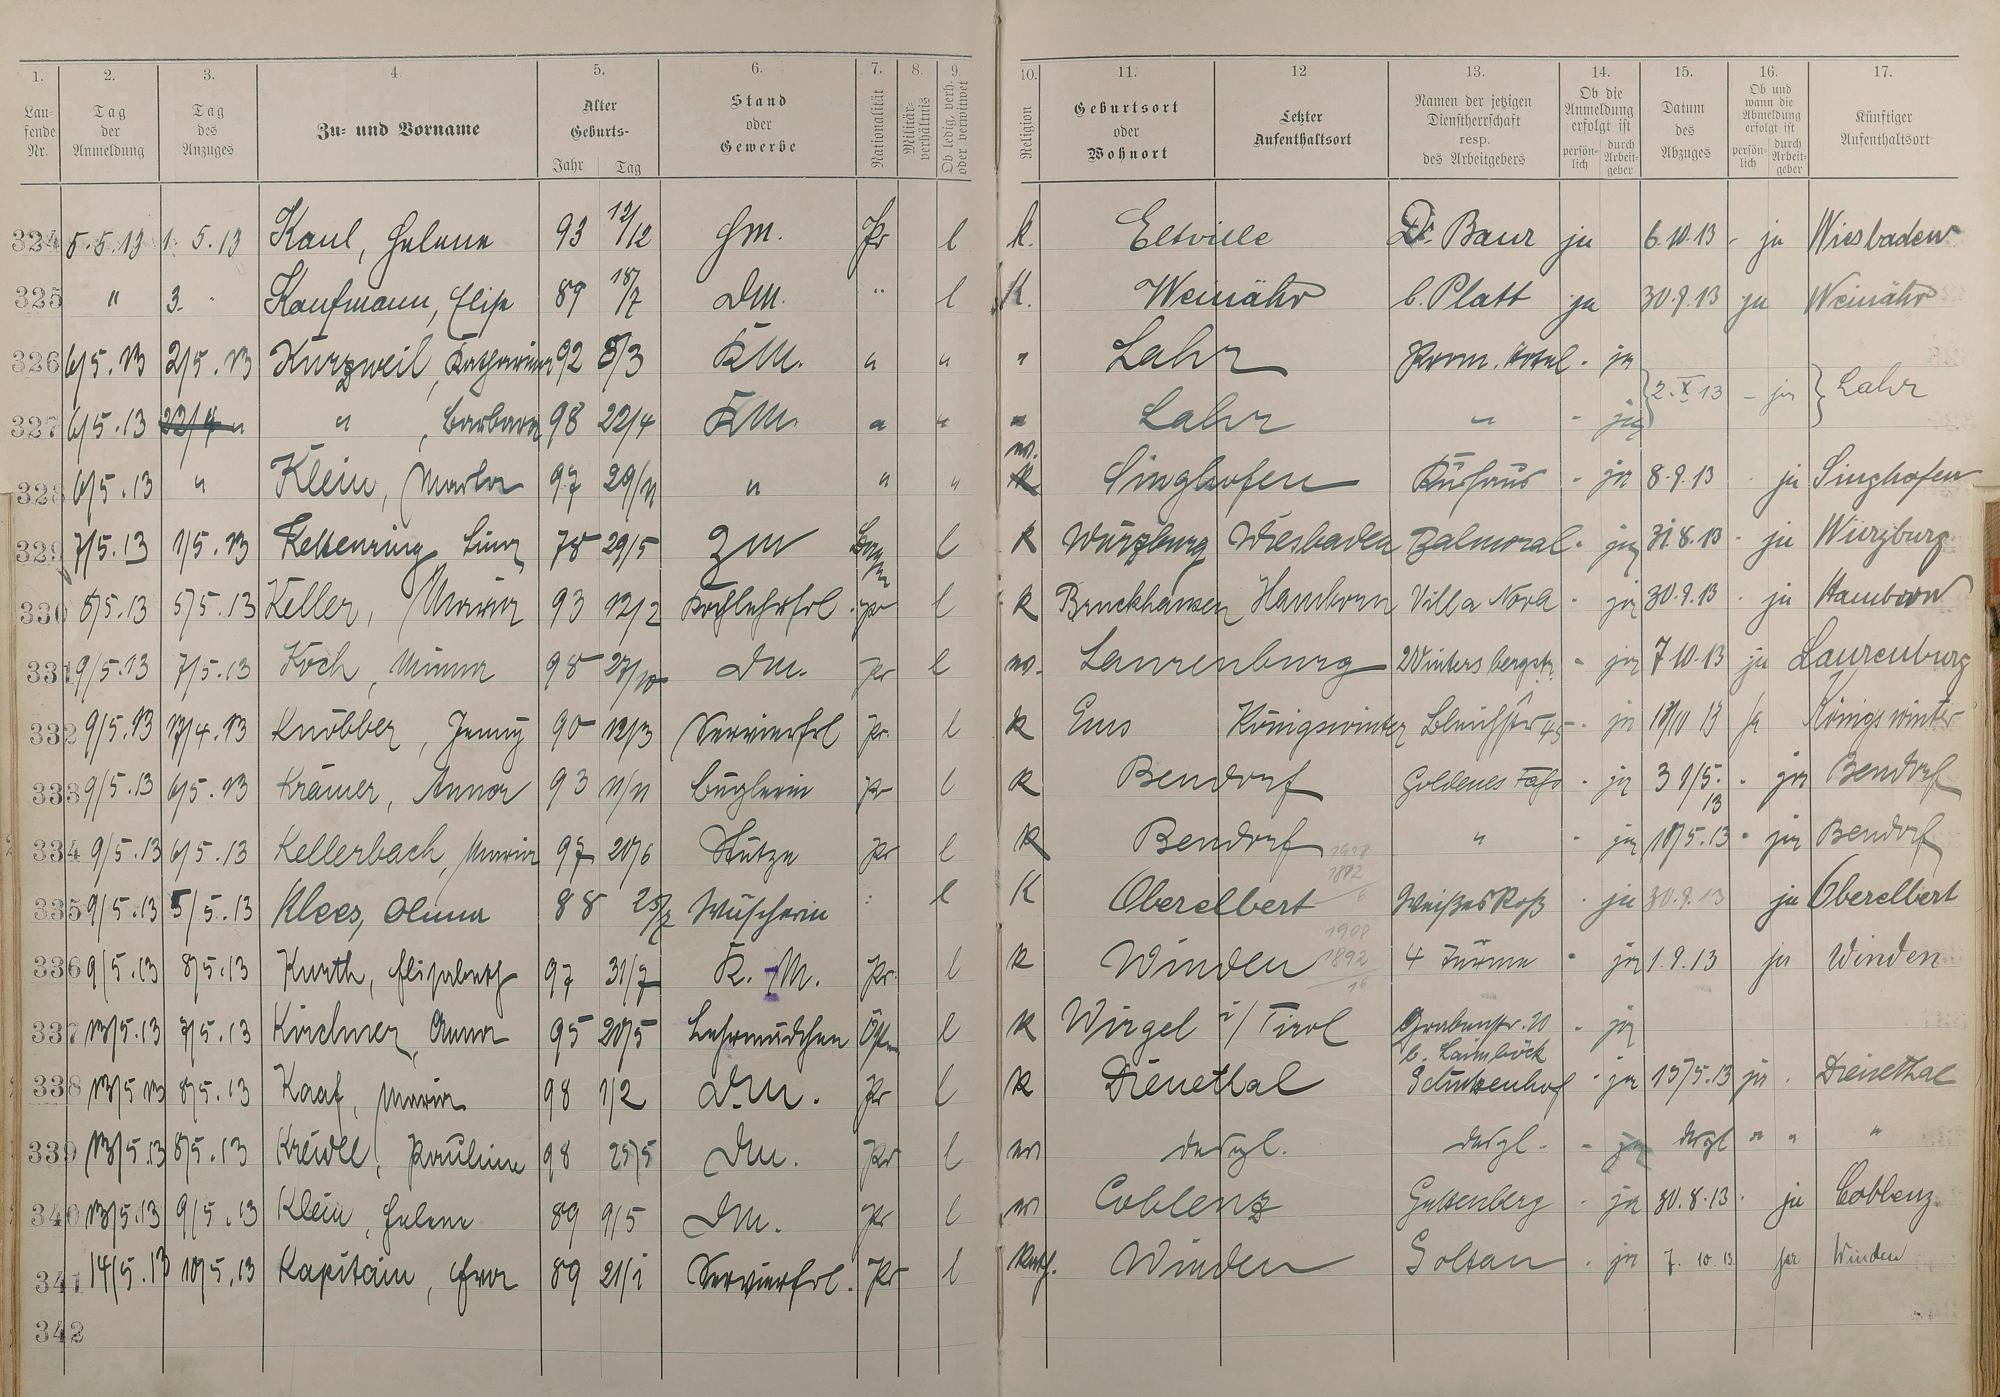 1. 2. 3. 4. 5. 6. 7. 8. 9. 10. 11. 12. 13. 14. 15. 16. 17.
Laufende Nr. Tag der Anmeldung Tag des Anzuges Zu- und Vorname Alter Geburts- Jahr Tag Stand oder Gewerbe Nationalität Militärverhältnis Ob ledig, verh. oder verwitwet Religion Geburtsort oder Wohnort Letzter Aufenthaltsort Namen der jetzigen Dienstherrschaft resp. des Arbeitgebers Ob die Anmeldung erfolgt ist persönlich durch Arbeitgeber Datum des Abzuges Ob und wann die Abmeldung erfolgt ist persönlich durch Arbeitgeber Künftiger Aufenthaltsort
324 5.5.13 1. 5.13 Kaul, Helene 93 12/12 Hm. Pr l k. Eltville Dr. Baur ja 6.10.13 - ja Wiesbaden
325 " 3. Kaufmann, Elise 89 18/7 DM. " l K. Weinähr b. Platt ja 30.9.13 ja Weinähr
326 6/5.13 2/5.13 Kurzweil, Katharina 92 8/3 KM. " " " Lahr Prom. Hotel - ja 2.X.13 - ja Lahr
327 6/5.13 22/4 " " , Barbara 98 22/4 KM. " " " Lahr " - ja
328 6/5.13 " Klein, Martha 97 29/11 " " " ev. k Singhofen Kurhaus - ja 8.9.13 - ja Singhofen
329 7/5.13 1/5.13 Kettenring, Lina 78 29/5 ZM Bayern l k Würzburg Wiesbaden Balmoral - ja 31.8.13 - ja Würzburg
330 8/5.13 5/5.13 Keller, Maria 93 12/2 Kochlehrfrl. Pr l k Bruckhausen Hamborn Villa Nova - ja 30.9.13 - ja Hamborn
331 9/5.13 7/5.13 Koch, Minna 98 27/10 DM. Pr l ev. Laurenburg Wintersbergstr. - ja 7.10.13 ja Laurenburg
332 9/5.13 13/4.13 Knöbber, Jenny 90 12/3 Servierfrl Pr. l k Ems Königswinter Bleichstr 45 - ja 13/10 13 ja Königswinter
333 9/5.13 6/5.13 Krämer, Anna 93 11/11 Büglerin Pr l k Bendorf Goldenes Fass - ja 31/5.13 - ja Bendorf
334 9/5.13 6/5.13 Kellerbach, Maria 97 20/6 Stütze Pr l k Bendorf " - ja 18/5.13 - ja Bendorf
1908
1892
6
335 9/5.13 5/5.13 Klees, Anna 88 25/7 Wäscherin : l K Oberelbert Weißes Roß - ja 30.9.13 ja Oberelbert
1908
1892
16
336 9/5.13 8/5.13 Kurth, Elisabeth 97 31/7 K. M. Pr. l k Winden 4 Türme - ja 1.9.13 ja Winden
337 13/5.13 7/5.13 Kirchner, Anna 95 20/5 Lehrmädchen l k Wirgel i/Tirol Grabenstr. 20 - ja
b. Laimböck
338 13/5 13 8/5.13 Kaaf, Maria 98 1/2 D.M. Pr l k Dienethal Schützenhof - ja 15/5.13 ja - Dienethal
339 13/5.13 8/5.13 Kreidel, Pauline 98 25/5 DM. Pr l ev desgl. desgl. - ja desgl " " "
340 13/5.13 9/5.13 Klein, Helene 89 9/5 DM. Pr l ev Coblenz Guttenberg - ja 30.8.13 - ja Coblenz.
341 14/5.13 10/5.13 Kapitain, Eva 89 21/1 Servierfrl. Pr l Kath. Winden Soltau - ja 7.10.13 ja Winden
342